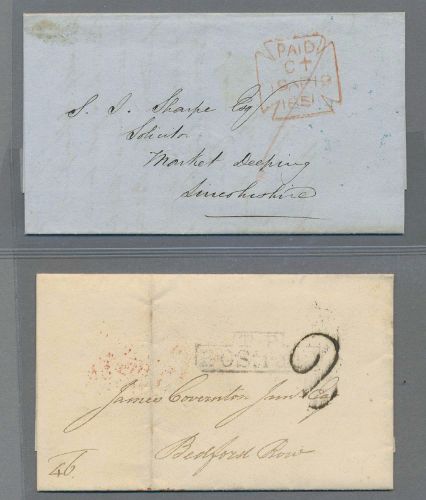 PAID
C
18 AP 19
1851
S. J. Sharpe Esq
Solicitor
Market Deeping
Lincolnshire
T.P
POST
2
James Coverton Jun Esq
Bedford Row